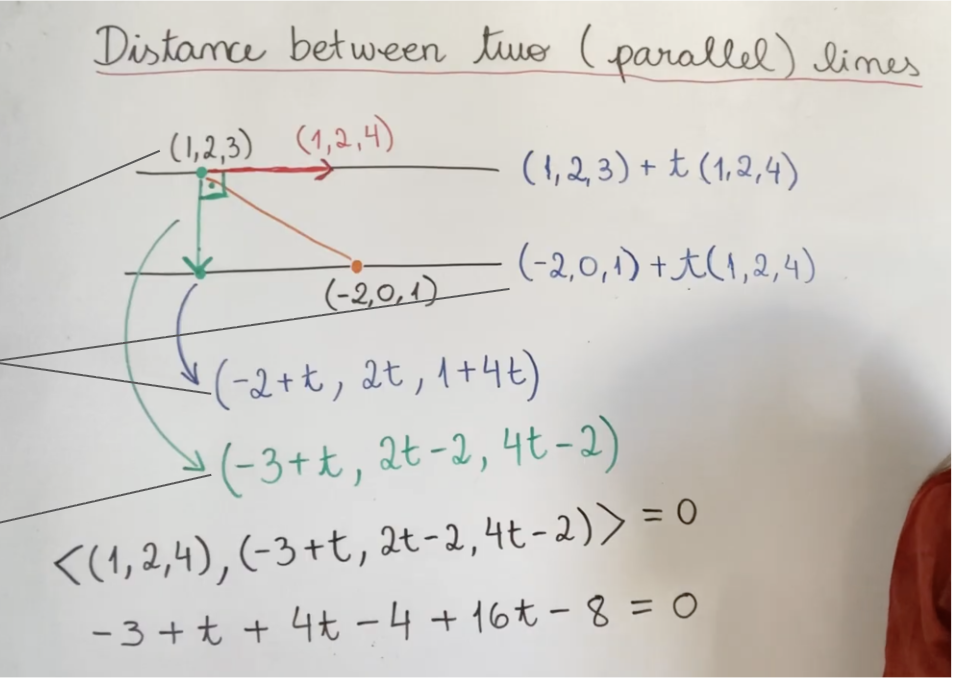 Distance between two (parallel) lines
(1,2,3) (1,2,4) (1,2,3) + t (1,2,4)
(-2,0,1) + t(1,2,4)
(-2,0,1)
(-2+t, 2t, 1+4t)
(-3+t, 2t-2, 4t-2)
<(1,2,4), (-3+t, 2t-2, 4t-2)> = 0
-3 + t + 4t - 4 + 16t - 8 = 0